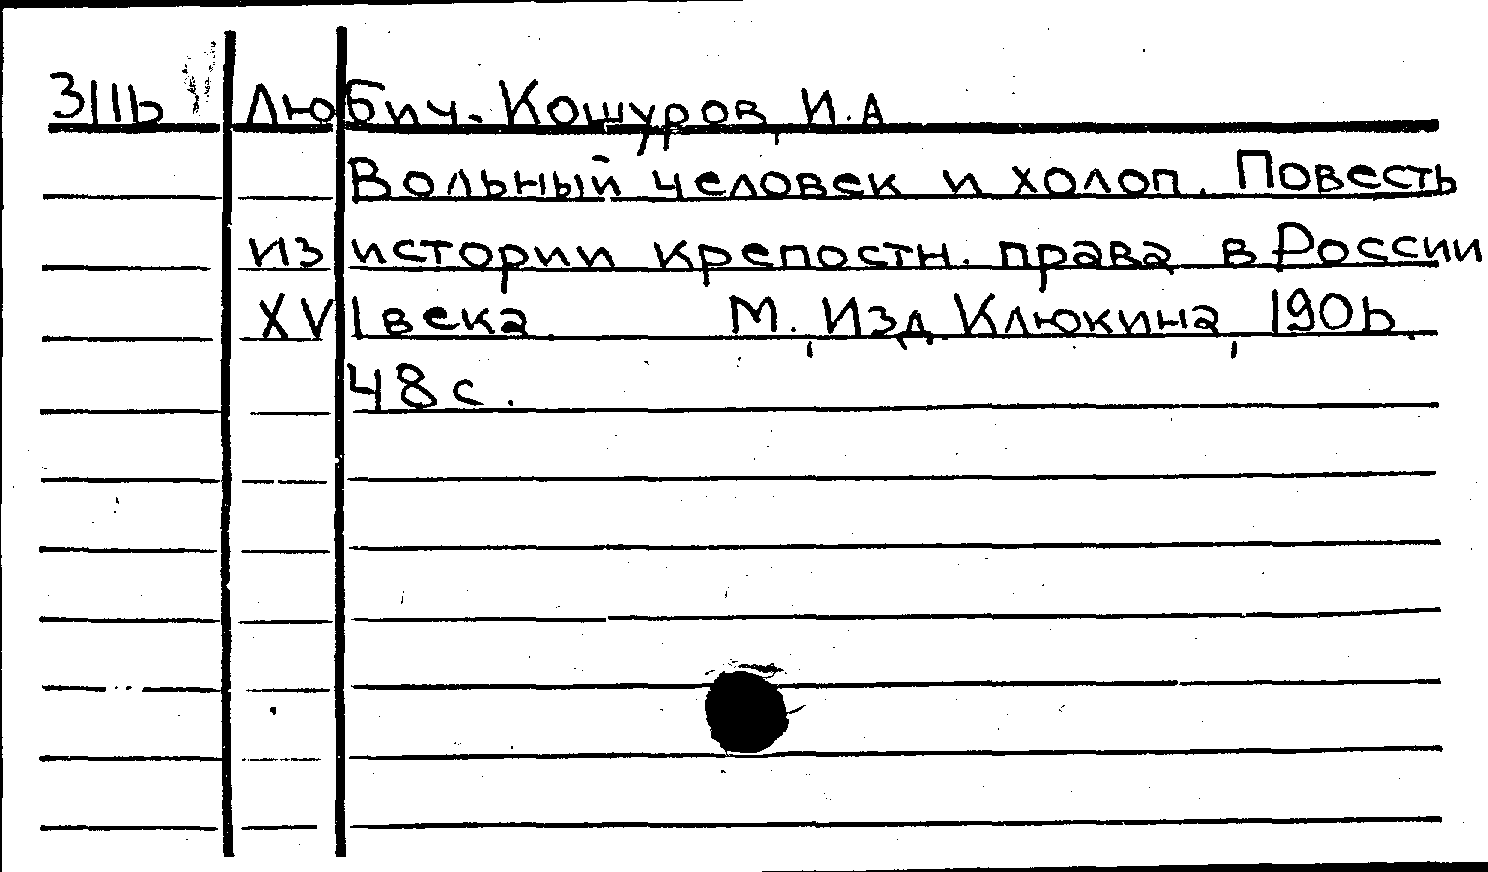 3116 Любич-Кошуров, И.А
Вольный человек и холоп. Повесть
из истории крепостн. права в России
XVI века. М., Изд. Клюкина, 1906.
48 с.